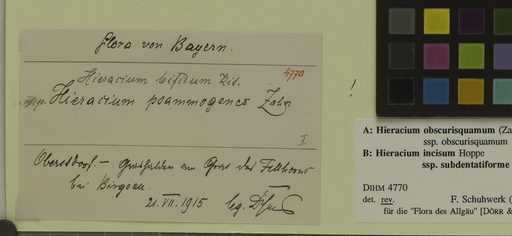 Flora von Bayern.
Hieracium bifidum Kit.
4770
ssp. Hieracium psammogenes Zahn
!
I
Oberstdorf. – Grashalden am Grat des Fellhorns
bei Birgsau.
21. VII. 1915 leg.
A: Hieracium obscurisquamum (Za
ssp. obscurisquamum
B: Hieracium incisum Hoppe
ssp. subdentatiforme
DIHM 4770
det. rev. F. Schuhwerk (
für die "Flora des Allgäu" [DÖRR &